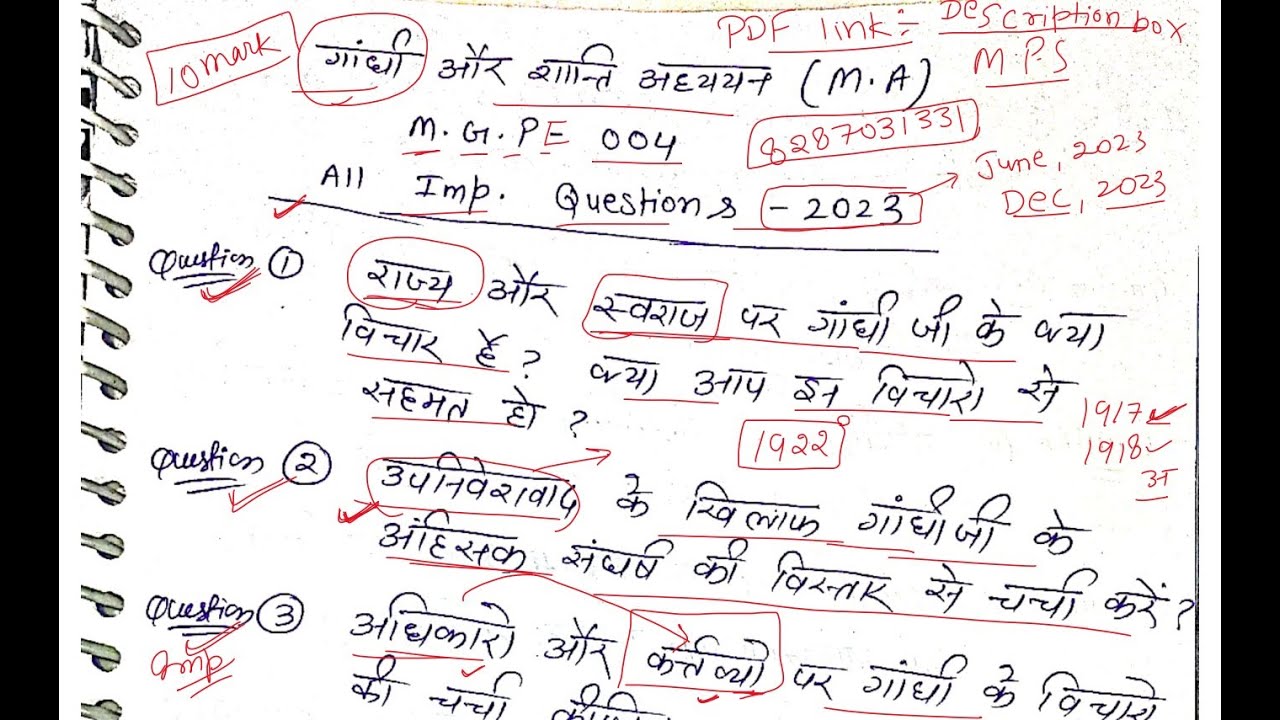 10 mark
गांधी और शान्ति अध्ययन (M.A)
PDF link :- Description box
MPS
M.G.PE 004
8287031331
All Imp. Questions - 2023
June, 2023
Dec, 2023
Question ① राज्य और स्वराज पर गांधी जी के क्या
विचार हैं? क्या आप इन विचारो से
सहमत हो ?
1922
1917
1918
अ
Question ② उपनिवेशवाद के खिलाफ गांधीजी के
अहिंसक संघर्ष की विस्तार से चर्चा करें?
Question ③ अधिकारो और कर्त्तव्यो पर गांधी के विचारो
Imp
की चर्चा कीजिए